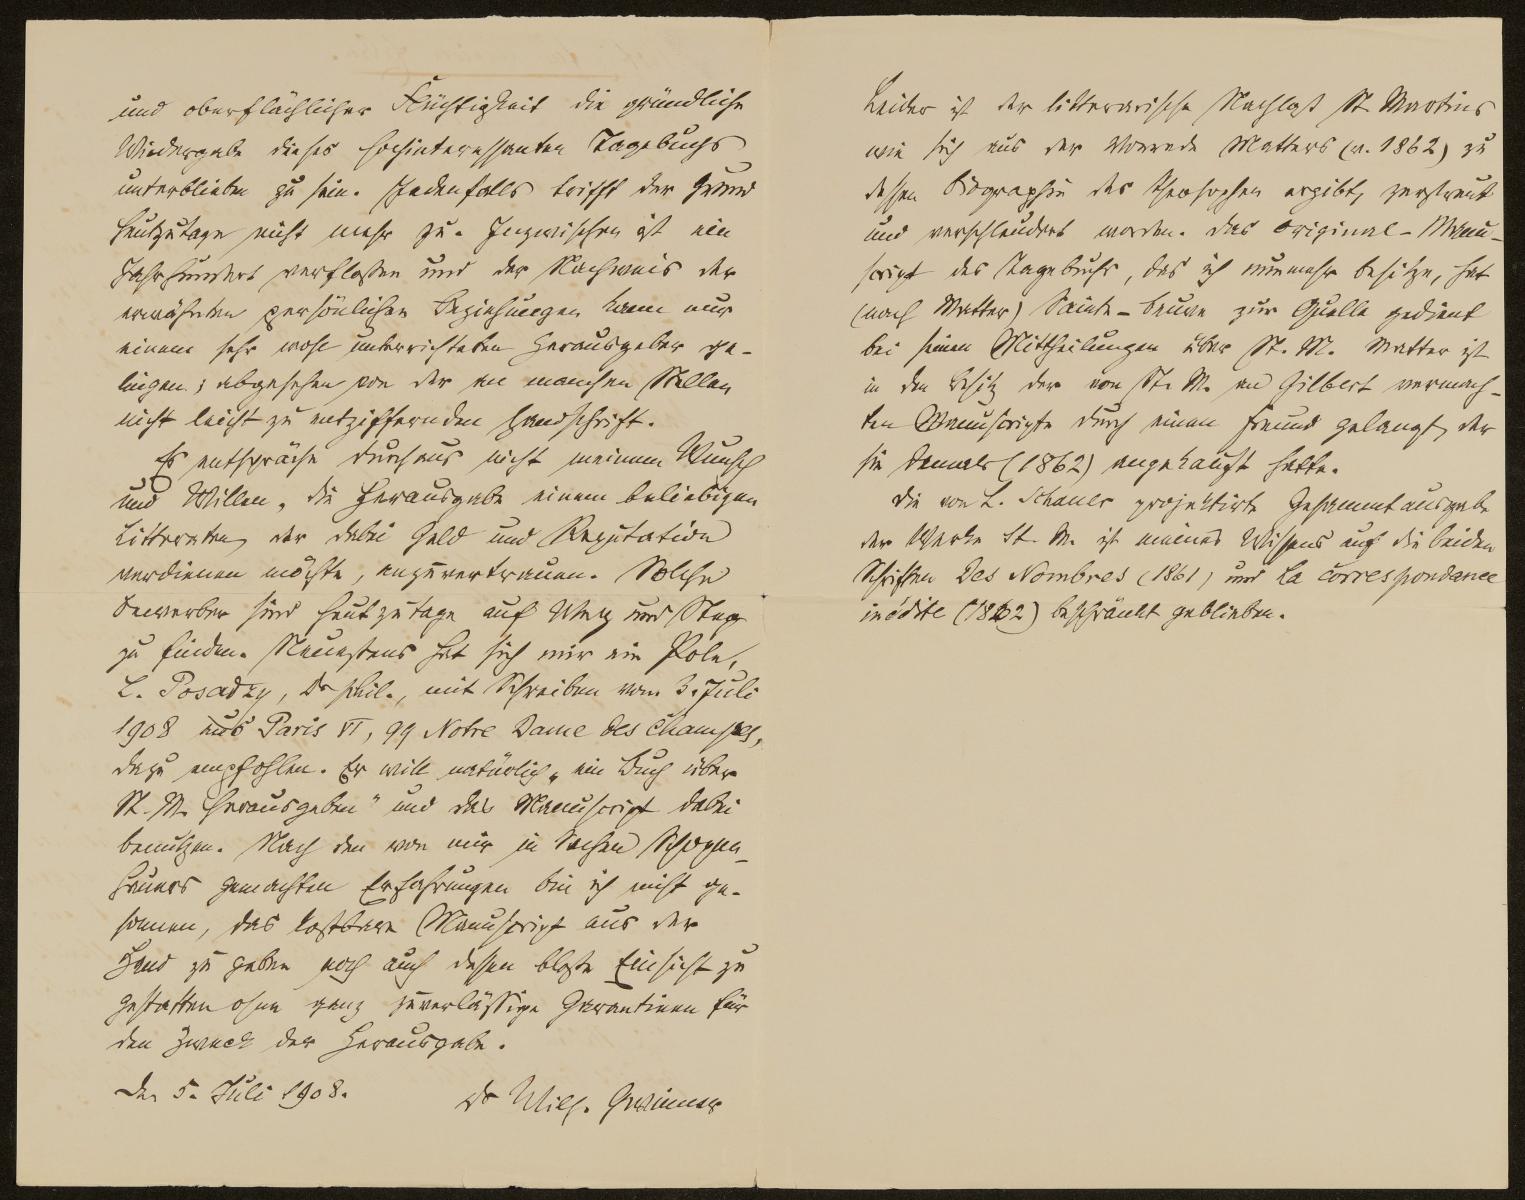 und oberflächlicher Flüchtigkeit die gründliche
Wiedergabe dieses hochinteressanten Tagebuchs
unterblieben zu sein. Jedenfalls trifft der Grund
heutzutage nicht mehr zu. Inzwischen ist ein
Jahrhundert verflossen und der Nachweis der
erwähnten persönlichen Beziehungen kann nur
einem sehr wohl unterrichteten Herausgeber ge-
lingen; abgesehen von der an manchen Stellen
nicht leicht zu entziffernden Handschrift.
Es entspräche durchaus nicht meinem Wunsch
und Willen, die Herausgabe einem beliebigen
Litteraten, der dabei Geld und Reputation
verdienen möchte, anzuvertrauen. Solche
Bewerber sind heutzutage auf Weg und Steg
zu finden. Neuestens hat sich mir ein Pole,
L. Posadzy, Dr phil., mit Schreiben vom 3. Juli
1908 aus Paris VI, 99 Notre Dame des Champs,
dazu empfohlen. Er will natürlich „ein Buch über
St. M. herausgeben" und das Manuscript dabei
benutzen. Nach den von mir in Sachen Schopen-
hauers gemachten Erfahrungen bin ich nicht ge-
sonnen, das kostbare Manuscript aus der
Hand zu geben noch auch dessen bloße Einsicht zu
gestatten ohne ganz zuverlässige Garantieen für
den Zweck der Herausgabe.
Den 5. Juli 1908.
Dr Wilh. Gwinner
Leider ist der litterarische Nachlaß St. Martins
wie sich aus der Vorrede Matters (v. 1862) zu
dessen Biographie des Theosophen ergibt, zerstreut
und verschleudert worden. Das Original-Manu-
script des Tagebuchs, das ich nunmehr besitze, hat
(nach Matter) Sainte-Beuve zur Quelle gedient
bei seinen Mittheilungen über St. M. Matter ist
in den Besitz der von St. M. an Gilbert vermach-
ten Manuscripte durch einen Freund gelangt, der
sie damals (1862) angekauft hatte.
Die von L. Schauer projektirte Gesammtausgabe
der Werke St. M. ist meines Wissens auf die beiden
Schriften Des Nombres (1861) und La correspondance
inédite (1862) beschränkt geblieben.